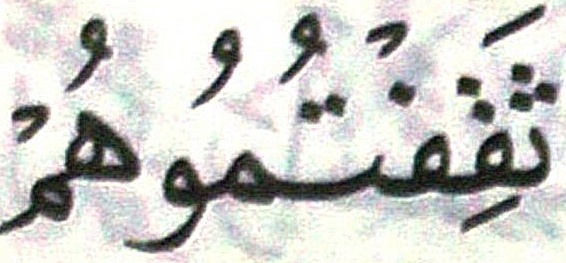 ثَقِفْتُمُوهُمْ